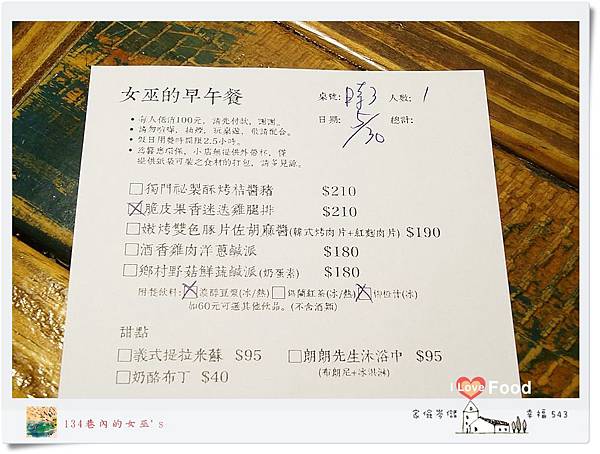 女巫的早午餐
桌號: 時3 人數: 1
日期: 5/30 總計:
• 每人低消100元, 請先付款, 謝謝。
• 請勿喧嘩, 抽煙, 玩桌遊, 敬請配合。
• 假日用餐時間限2.5小時。
• 為響應環保, 小店無提供外帶杯, 僅
提供紙袋可裝之食材的打包, 請多見諒。
□獨門祕製酥烤桔醬豬 $210
☒脆皮果香迷迭雞腿排 $210
□嫩烤雙色豚片佐胡麻醬(韓式烤肉片+紅麴肉片) $190
□酒香雞肉洋蔥鹹派 $180
□鄉村野菇鮮蔬鹹派(奶蛋素) $180
附餐飲料:☒濃醇豆漿(冰/熱)□錫蘭紅茶(冰/熱)☒柳橙汁(冰)
加60元可選其他飲品。(不含酒類)
甜點
□義式提拉米蘇 $95 □朗朗先生沐浴中 $95
(布朗尼+冰淇淋)
□奶酪布丁 $40
I Love Food
134巷內的女巫's
幸福 543